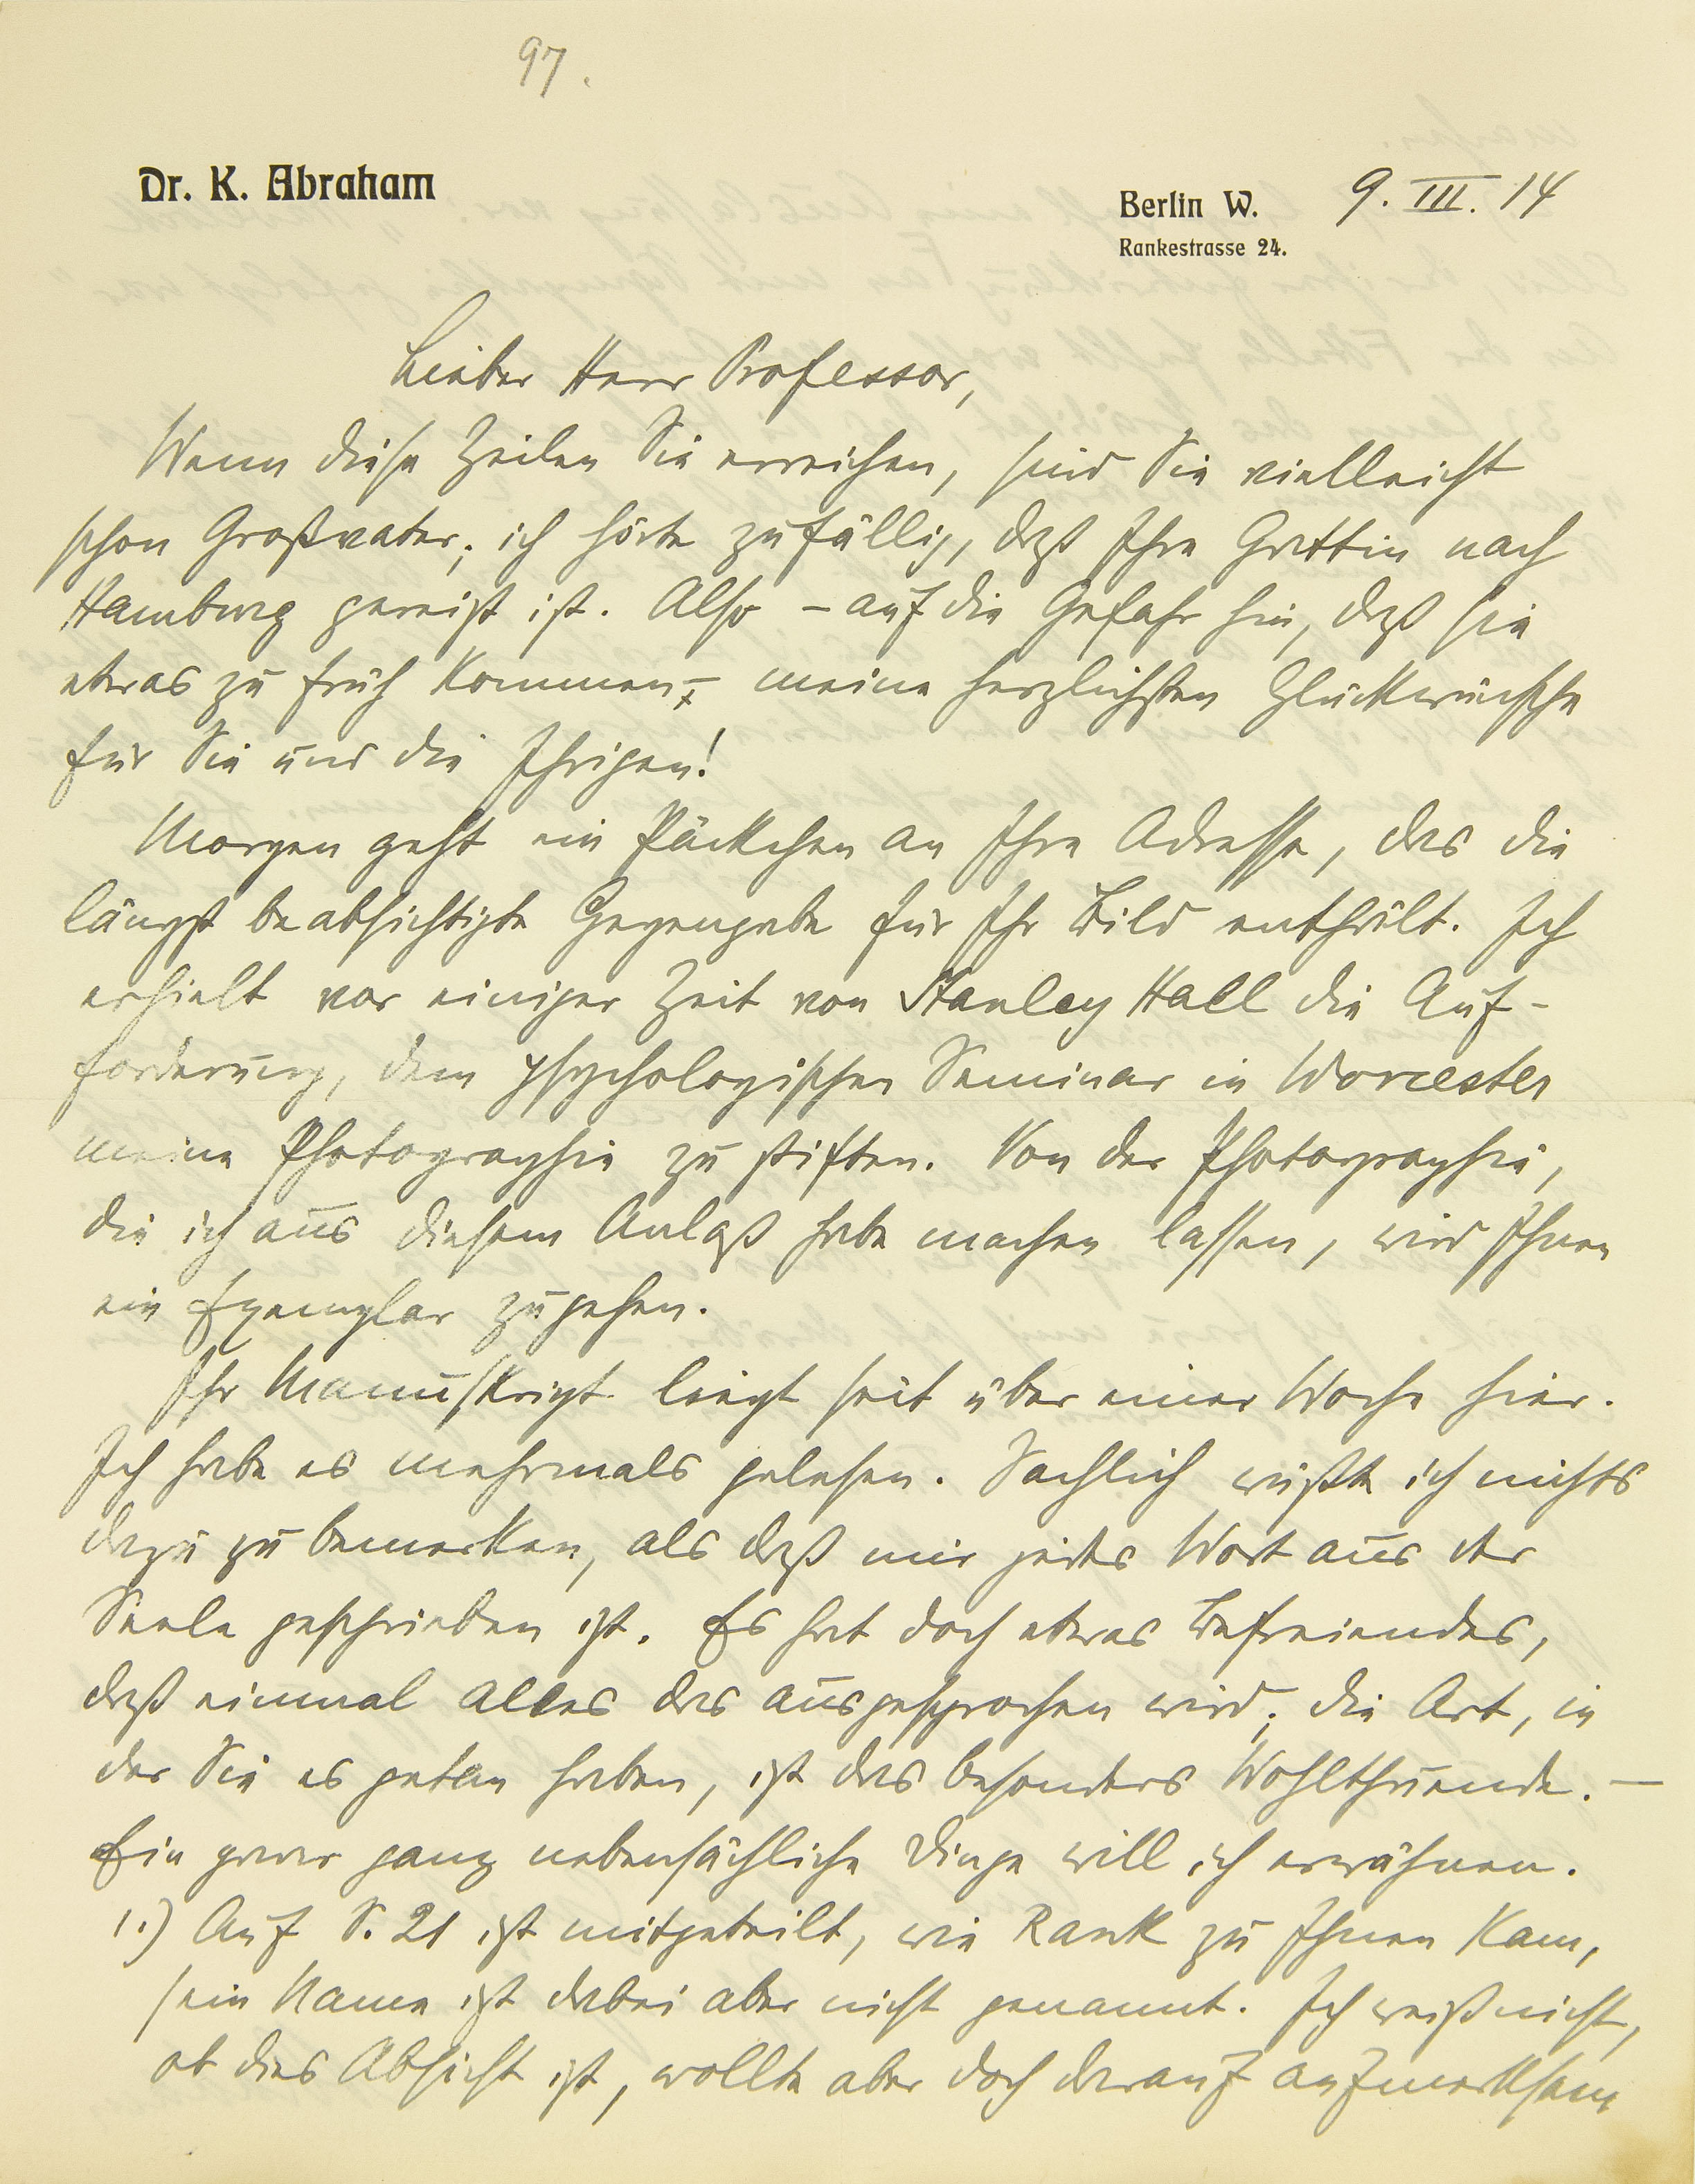 97.
Dr. K. Abraham
Berlin W. 9. III. 14
Rankestrasse 24.
Lieber Herr Professor,
Wenn diese Zeilen Sie erreichen, sind Sie vielleicht
schon Großvater; ich hörte zufällig, daß Ihre Gattin nach
Hamburg gereist ist. Also – auf die Gefahr hin, daß sie
etwas zu früh kommen – meine herzlichsten Glückwünsche
für Sie und die Ihrigen!
Morgen geht ein Päckchen an Ihre Adresse, das die
längst beabsichtigte Gegengabe für Ihr Bild enthält. Ich
erhielt vor einiger Zeit von Stanley Hall die Auf-
forderung, dem psychologischen Seminar in Worcester
meine Photographie zu stiften. Von der Photographie,
die ich aus diesem Anlaß habe machen lassen, wird Ihnen
ein Exemplar zugehen.
Ihr Manuskript liegt seit über einer Woche hier.
Ich habe es mehrmals gelesen. Sachlich wüßte ich nichts
dazu zu bemerken, als daß mir jedes Wort aus der
Seele geschrieben ist. Es hat doch etwas Befreiendes,
daß einmal alles das ausgesprochen wird; die Art, in
der Sie es getan haben, ist das besonders Wohlthuende. –
Ein paar ganz nebensächliche Dinge will ich erwähnen.
1.) Auf S. 21 ist mitgeteilt, wie Rank zu Ihnen kam,
sein Name ist dabei aber nicht genannt. Ich weiß nicht,
ob dies Absicht ist, wollte aber doch darauf aufmerksam